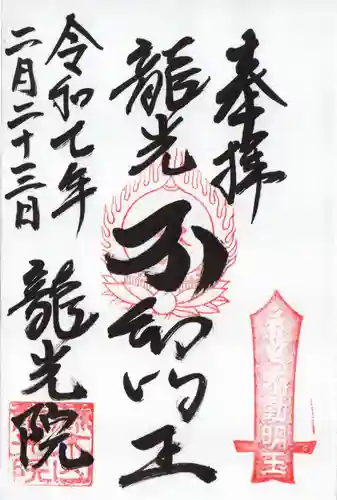 奉拝
龍光不動明王
令和七年
二月二十三日
龍光院